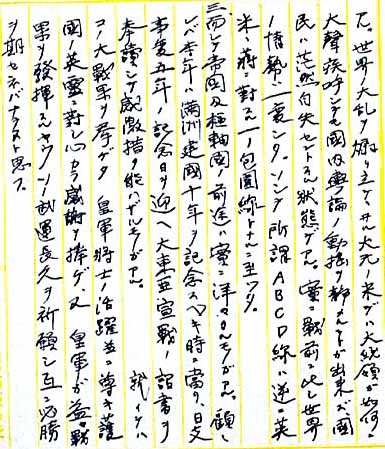 ス。世界ノ大乱ヲ煽リ立テタル大元ノ米ブハ大統領ガ如何ニ
大聲疾呼シテモ國内輿論ノ動揺ヲ静メルコトガ出来ズ國
民ハ茫然自失セントスル状態デアル。實ニ戦前ニ比シ世界
ノ情勢ハ一変シタ。ソシテ所謂ABCD線ハ逆ニ英
米ヲ蒋ニ對スルノ包圍線トナルニ至ッタ。
三、而シテ帝國及極軸國ノ前途ハ實ニ洋々タルモノガアル。顧ミ
レバ本年ハ満洲建國十年ヲ記念スベキ時ニ當リ、日支
事変五年ノ記念日ヲ迎ヘ大東亜宣戦ノ詔書ヲ
奉讀シテ感激措ク能ハザルモノガアル。就イテハ
コノ大戦果ヲ挙ゲタ皇軍将士ノ活躍並ニ尊キ護
國ノ英霊ニ對シ心カラ感謝ヲ捧ゲ、又皇軍ガ益々戦
果ヲ發揮スルヤウソノ武運長久ヲ祈願シ互ニ必勝
ヲ期セネバナラヌト思フ